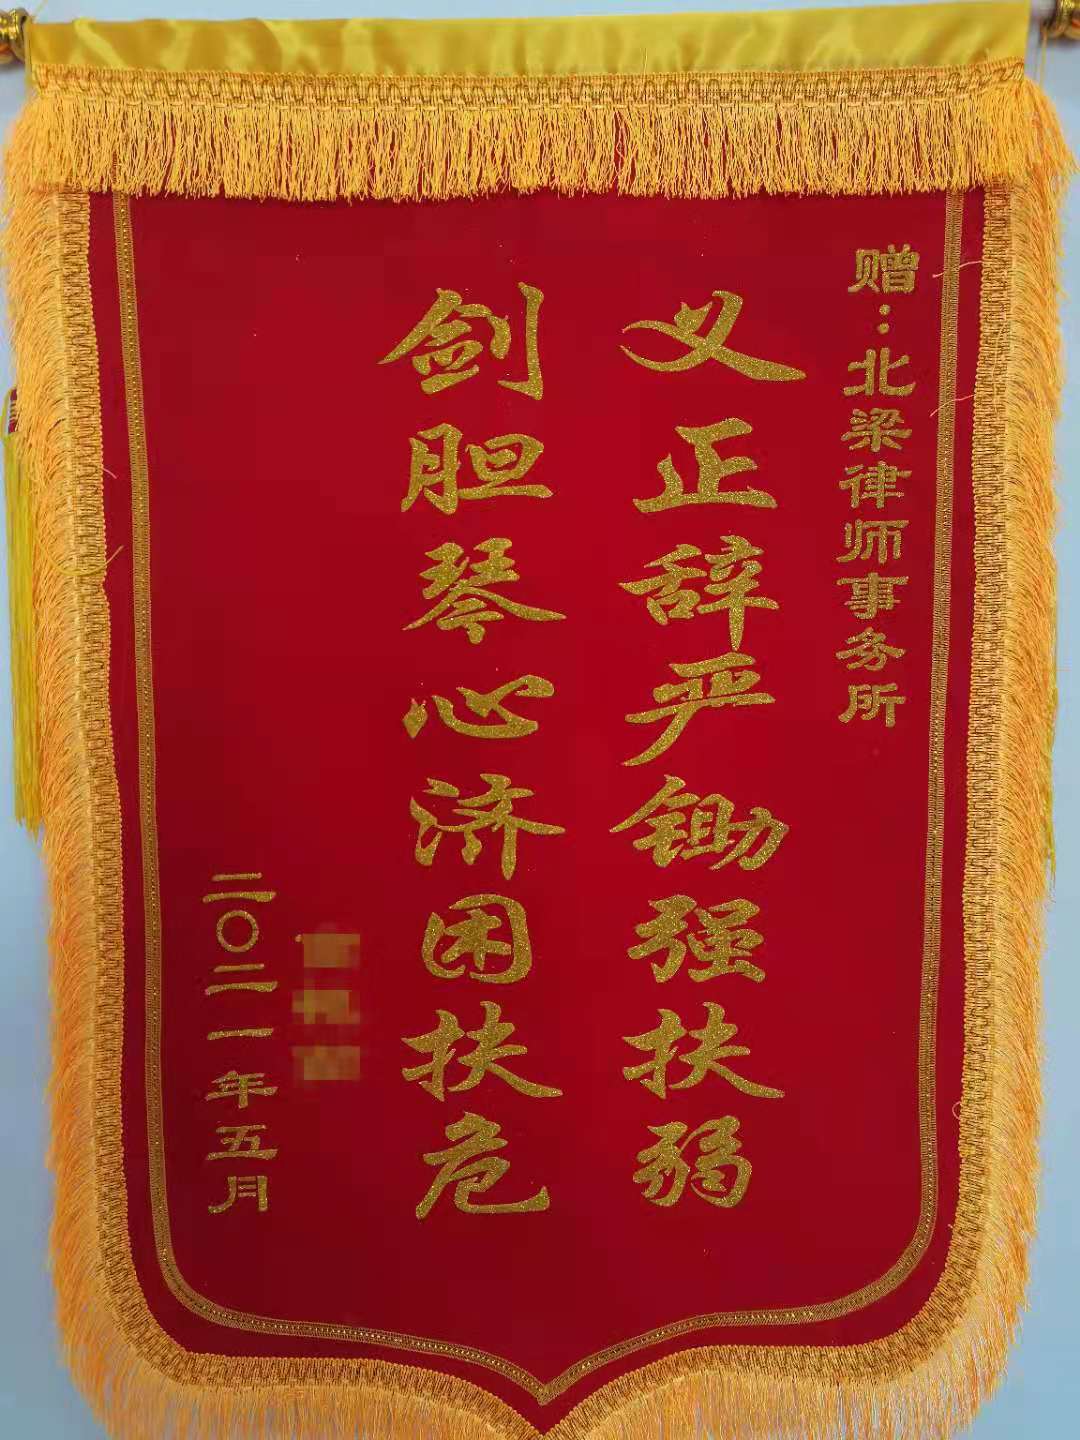 赠：北梁律师事务所
义正辞严锄强扶弱
剑胆琴心济困扶危
二〇二一年五月